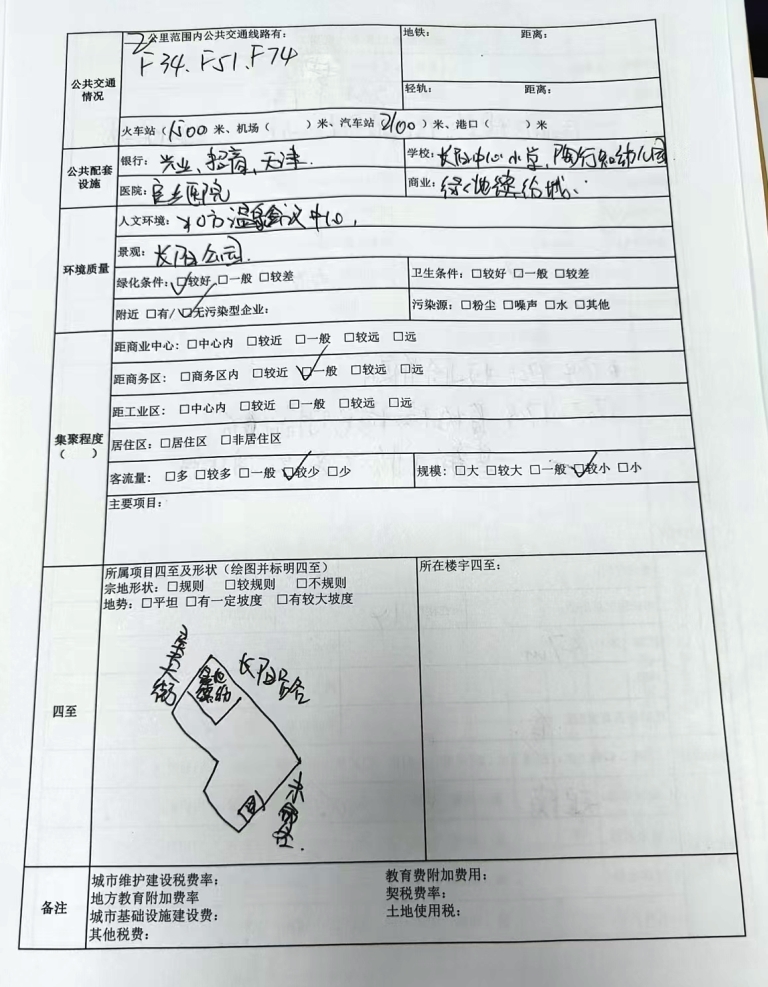 2公里范围内公共交通线路有：
F34、F51、F74
地铁： 距离：
公共交通情况
轻轨： 距离：
火车站（1500 米、机场（ ）米、汽车站 2100 ）米、港口（ ）米
公共配套设施
银行：兴业、招商、天津.
学校：长阳中心小学 陶行知幼儿园
医院： 医院
商业：绿地缤纷城
环境质量
人文环境： 温泉会议中心
景观：长阳公园.
绿化条件：☑较好 □一般 □较差
卫生条件：□较好 □一般 □较差
附近 □有/☑无污染型企业：
污染源：□粉尘 □噪声 □水 □其他
集聚程度（ ）
距商业中心：□中心内 □较近 □一般 □较远 □远
距商务区：□商务区内 □较近 ☑一般 □较远 □远
距工业区：□中心内 □较近 □一般 □较远 □远
居住区：□居住区 □非居住区
客流量：□多 □较多 □一般 ☑较少 □少
规模：□大 □较大 □一般 ☑较小 □小
主要项目：
四至
所属项目四至及形状（绘图并标明四至）
宗地形状：□规则 □较规则 □不规则
地势：□平坦 □有一定坡度 □有较大坡度
所在楼宇四至：
大街
绿地缤纷
长阳路
备注
城市维护建设税费率：
教育费附加费用：
地方教育附加费率
契税费率：
城市基础设施建设费：
土地使用税：
其他税费：